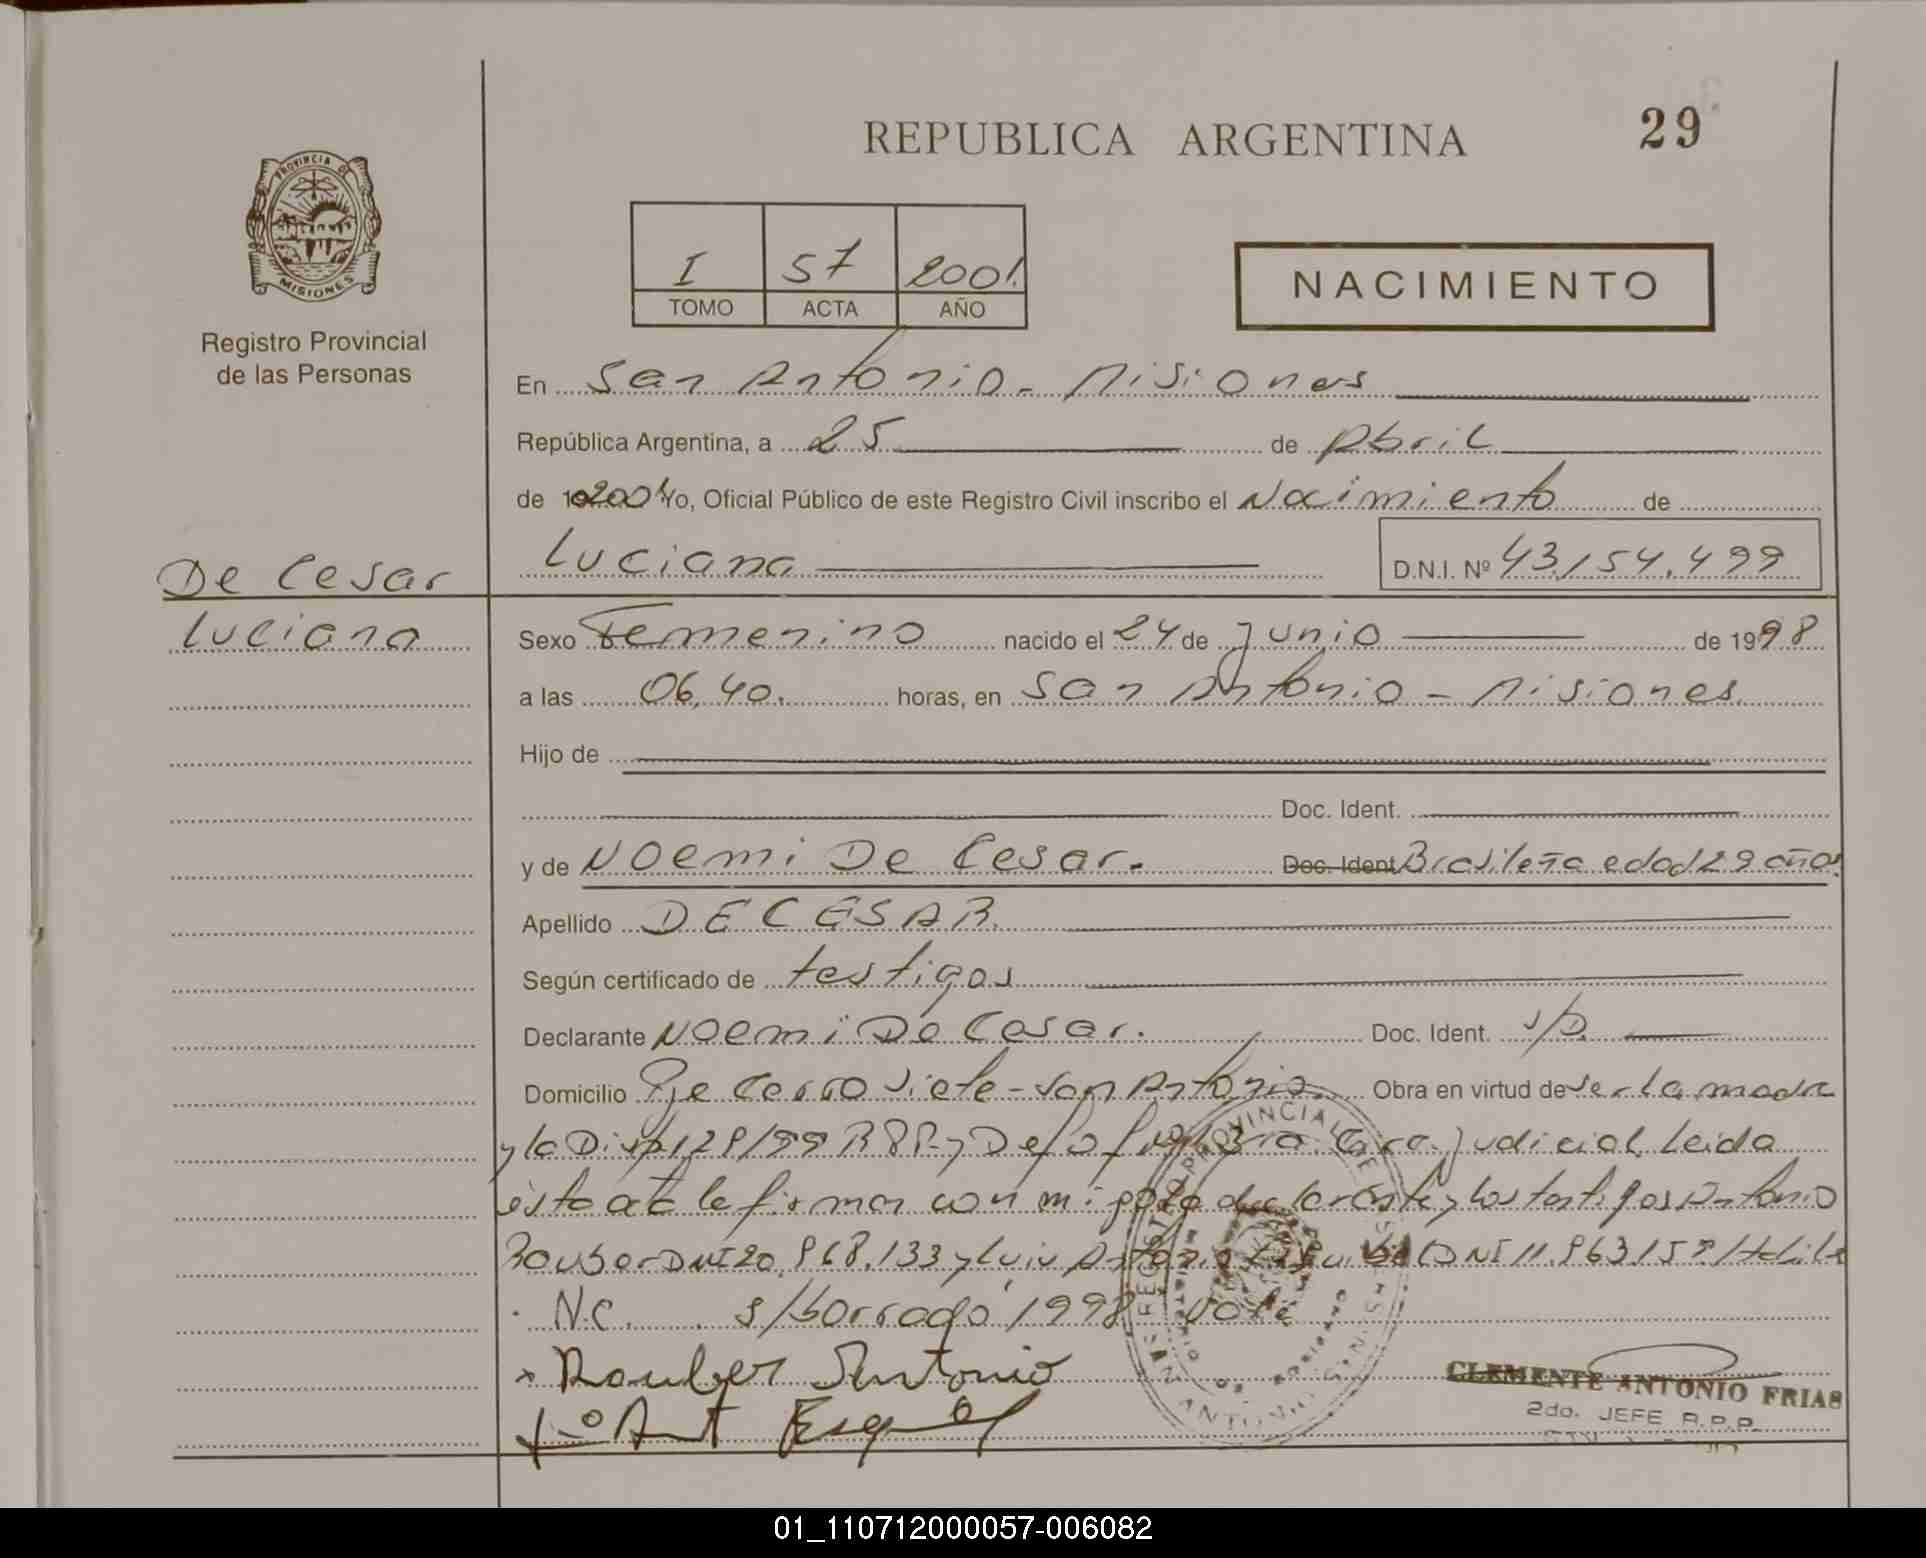 REPUBLICA ARGENTINA
29
PROVINCIA DE
MISIONES
Registro Provincial
de las Personas
I 57 2001.
TOMO ACTA AÑO
NACIMIENTO
En San Antonio - Misiones
República Argentina, a 25 de Abril
de 2001 Yo, Oficial Público de este Registro Civil inscribo el Nacimiento de
De Cesar
Luciana
Luciana D.N.I. Nº 43.154.499
Sexo Femenino nacido el 24 de Junio de 1998
a las 06,40. horas, en San Antonio - Misiones.
Hijo de
Doc. Ident.
y de Noemi De Cesar. Doc. Ident Brasileña edad 29 años
Apellido DE CESAR.
Según certificado de testigos
Declarante Noemi De Cesar. Doc. Ident. s/D.
Domicilio Pje Cerro Siete - San Antonio. Obra en virtud de ser la madre
y la Disp 128/99 R P P y Judicial. Leida
ésta acta la firman con migo declarante y los testigos Antonio
Rauber DNI 20.968.133 y Luis Antonio DNI 11.963.15
N.C. s/borrado 1998 vale
x Rauber Antonio
REGISTRO PROVINCIAL DE
SAN ANTONIO
CLEMENTE ANTONIO FRIAS
2do. JEFE R.P.P.
01_110712000057-006082